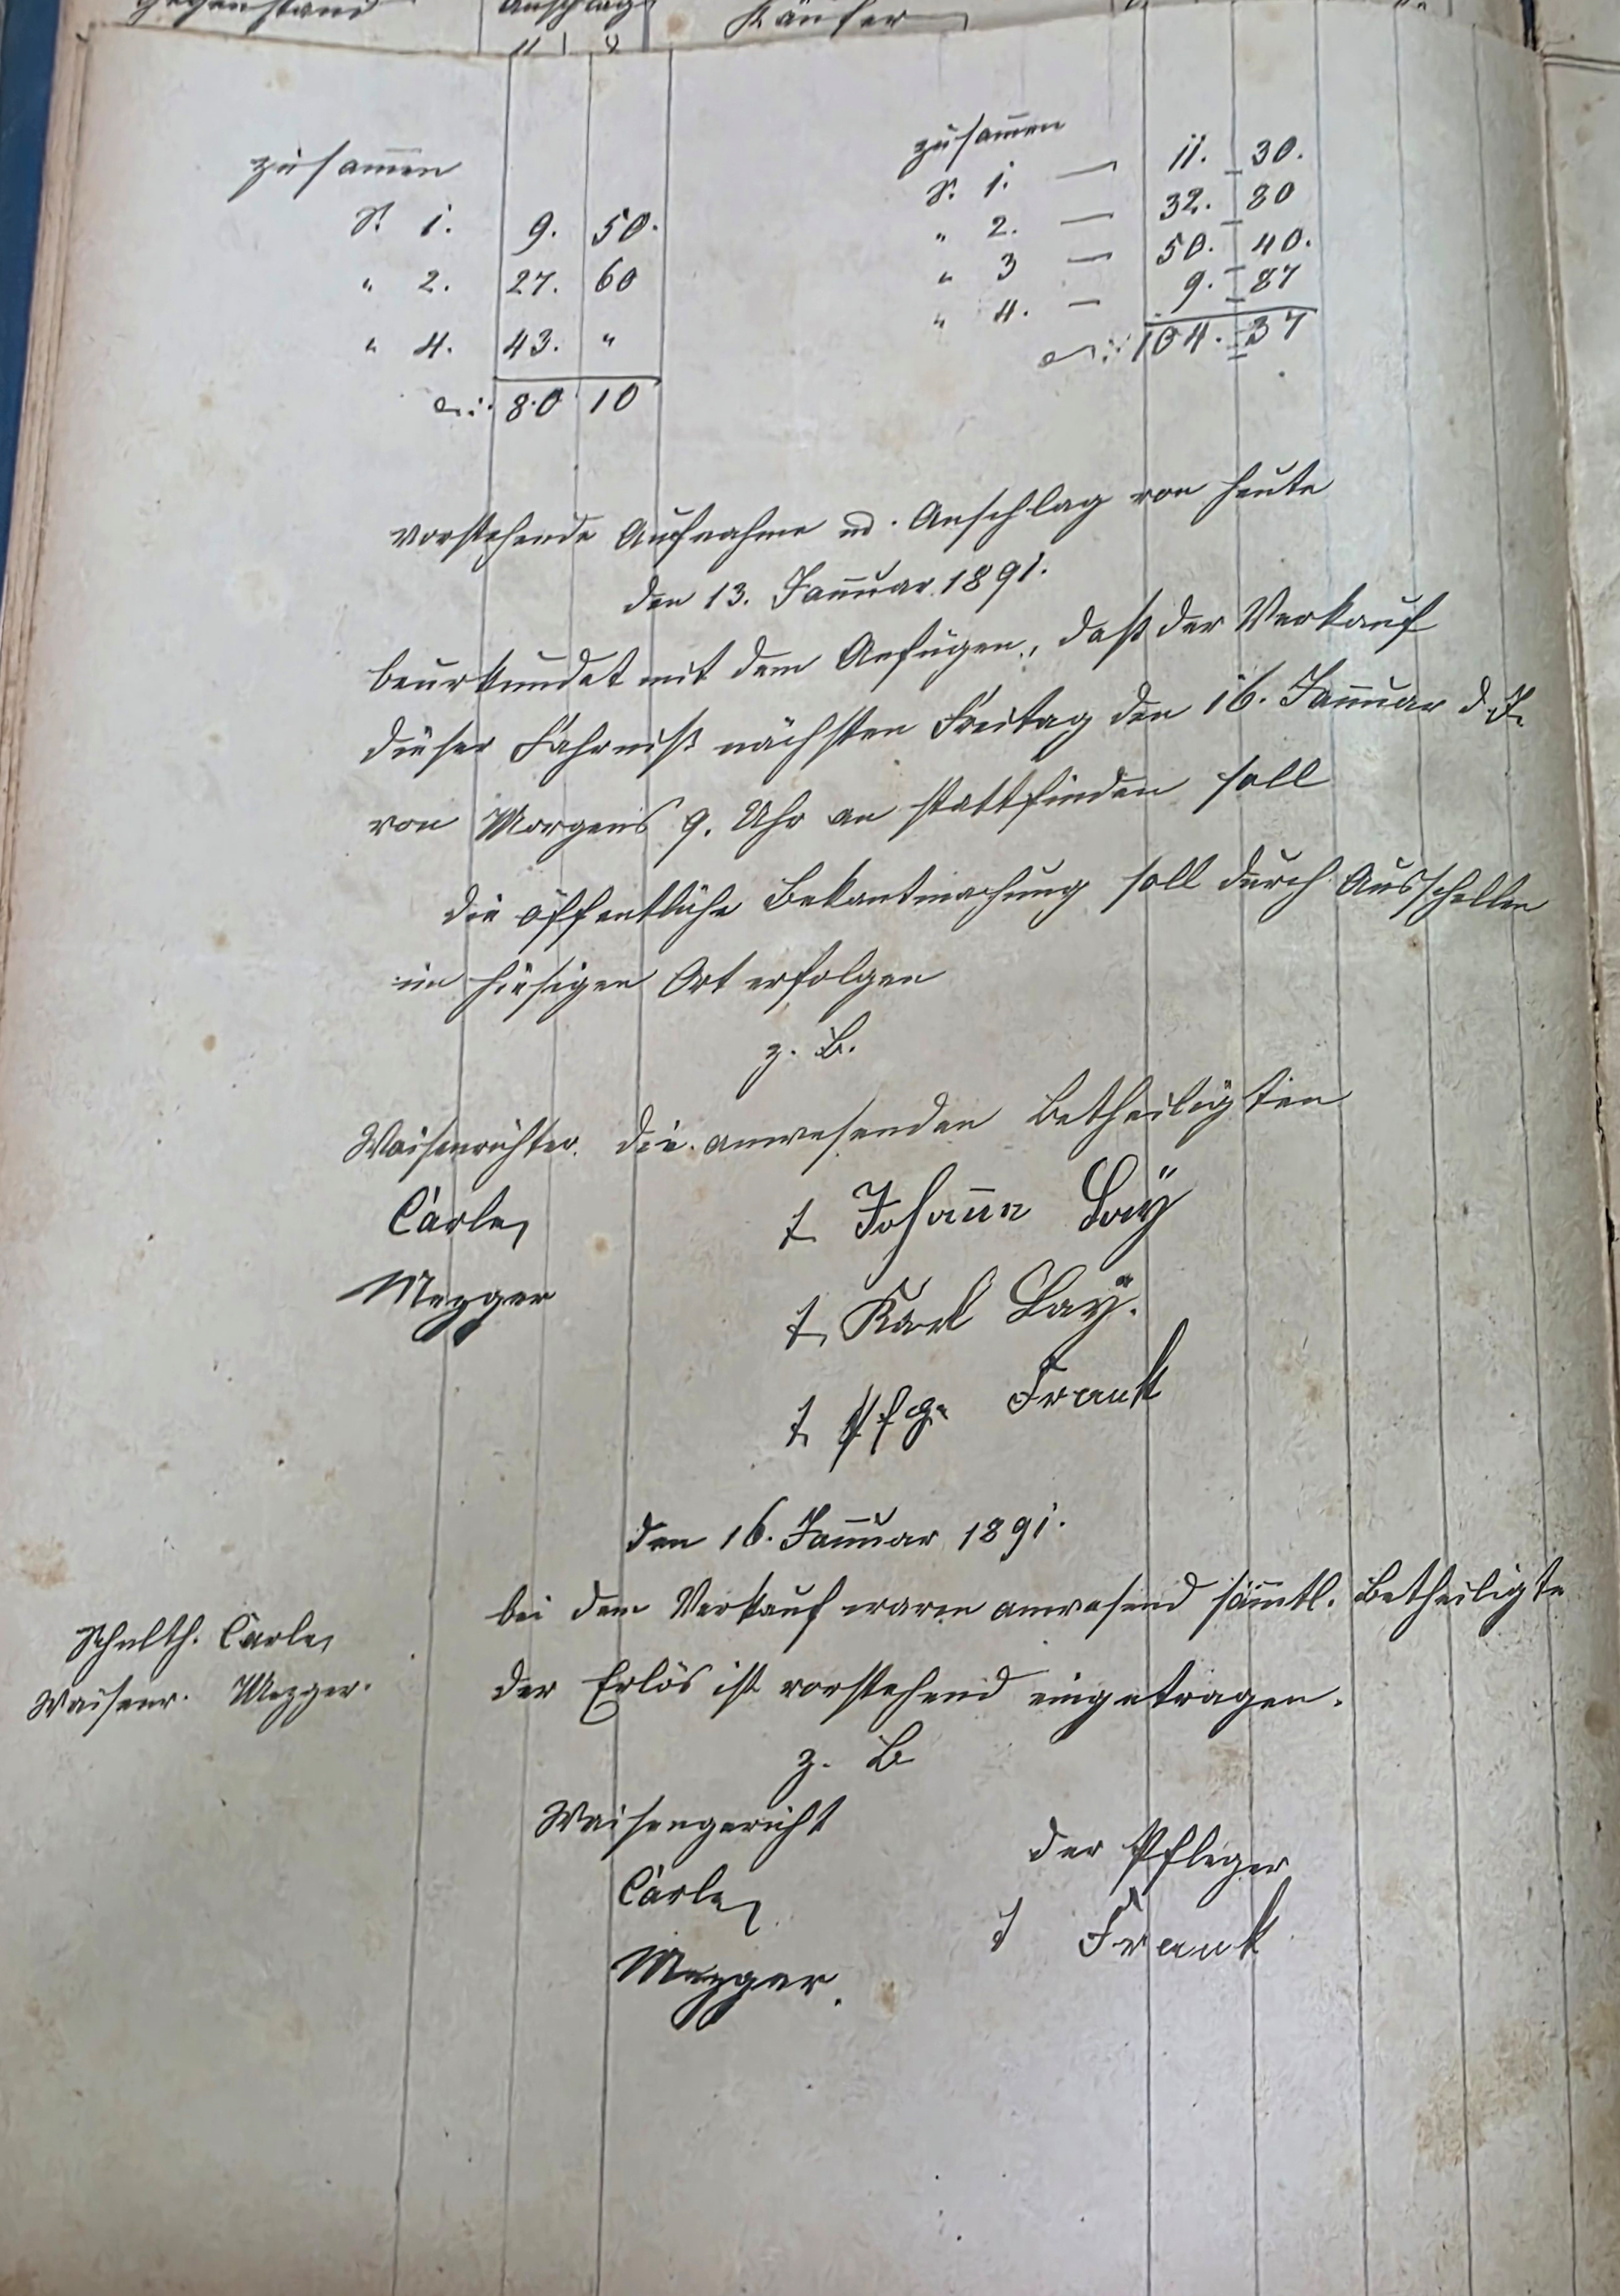 Gegenstand Anschlag Käufer
zusam̄en
S. 1. 9. 50.
" 2. 27. 60
" 4. 43. "
80 10
zusam̄en
S. 1. — 11. 30.
" 2. — 32. 80
" 3 — 50. 40.
" 4. — 9. 87
104. 37
Vorstehende Aufnahme u. Anschlag von heute
den 13. Jan̄uar 1891.
beurkundet mit dem Anfügen, daß der Verkauf
dieser Fahrniß nächsten Freitag den 16. Jan̄uar d. J.
von Morgens 9. Uhr an stattfinden soll
die öffentliche Bekantmachung soll durch Ausschellen
im hiesigen Ort erfolgen
z. B.
Waisenrichter. die anwesenden Betheiligten
Carle
Mezger
t. Johan̄n Laÿ
t. Karl Laÿ.
t. Pfg. Frank
den 16. Jan̄uar 1891.
bei dem Verkauf waren anwesend säm̄tl. Betheiligte
Schulth. Carle
Waisenr. Mezger.
der Erlös ist vorstehend eingetragen.
z. B
Waisengericht
Carle
Mezger.
der Pfleger
t Frank